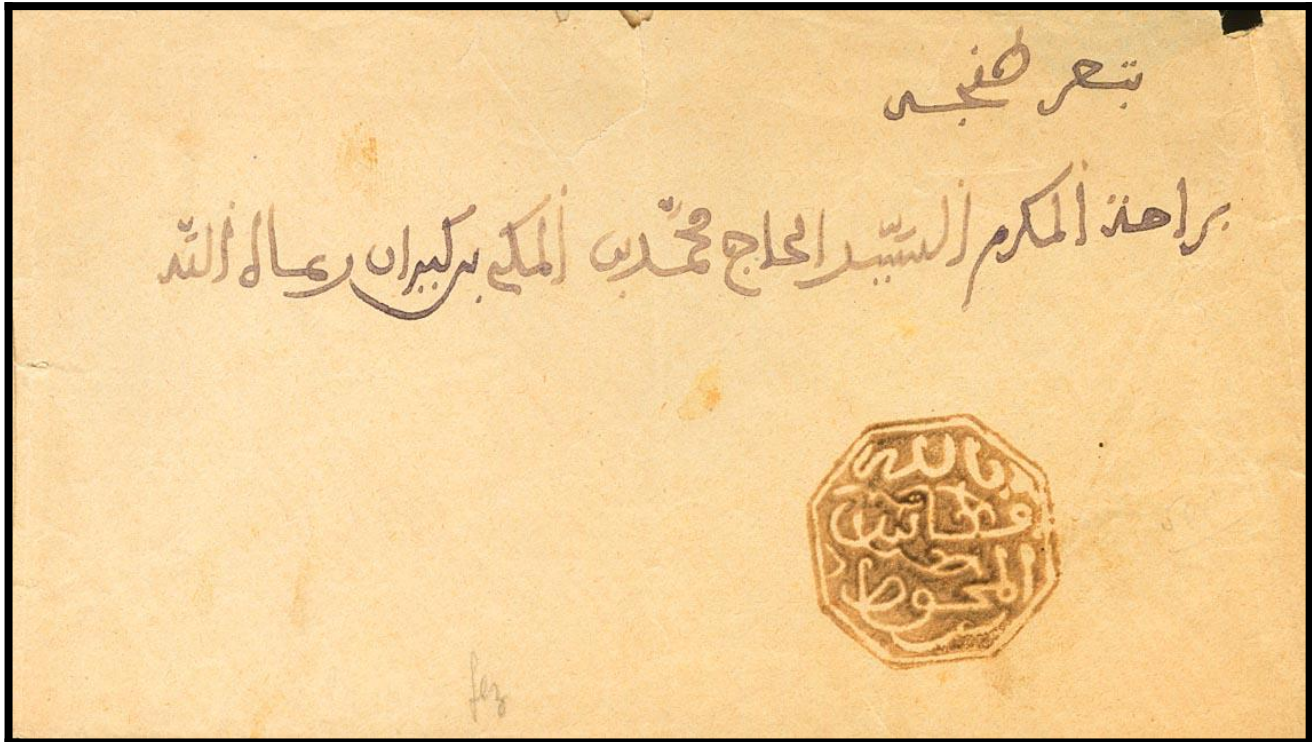 المكرم السيد الحاج محمد بن المكي بن كيران رعاه الله
بالله
فاس
المحوط
fez